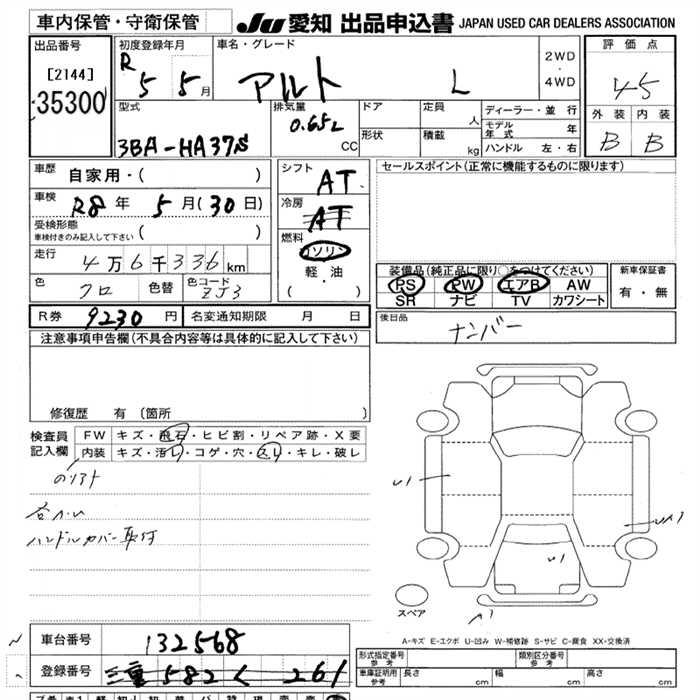 車内保管・守衛保管
JU 愛知 出品申込書 JAPAN USED CAR DEALERS ASSOCIATION
出品番号
[2144]
35300
初度登録年月
R 5 5月
車名・グレード
アルト L
2WD
・
4WD
評価点
4.5
外装 内装
B B
型式
3BA-HA37S
排気量
0.65L
CC
ドア
形状
定員 人
積載 kg
ディーラー・並行
モデル年式 年
ハンドル 左・右
車歴 自家用・( )
車検 R8年 5月(30日)
受検形態
車検付きのみ記入して下さい ( )
走行 4万6千336km
色 クロ 色替 色コード ZJ3
シフト AT
冷房 AT
燃料
ガソリン
軽・油
( ・ )
セールスポイント(正常に機能するものに限ります)
装備品(純正品に限り○をつけてください)
PS PW エアB AW
SR ナビ TV カワシート
新車保証書
有・無
R券 9230円 名変通知期限 月 日
後日品
ナンバー
注意事項申告欄(不具合内容等は具体的に記入して下さい)
修復歴 有 〔箇所 〕
検査員記入欄
FW キズ・飛石・ヒビ割・リペア跡・X要
内装 キズ・汚レ・コゲ・穴・スレ・キレ・破レ
ハンドルカバー取付
スペア
A-キズ E-エクボ U-凹み W-補修跡 S-サビ C-腐食 XX-交換済
車台番号 132568
登録番号 三重 582 く 261
形式指定番号 参考
類別区分番号 参考
車庫証明用 参考 長さ cm 幅 cm 高さ cm